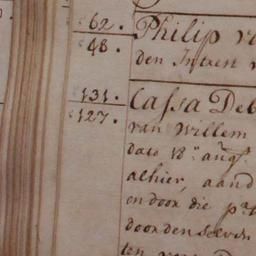 62. Philip
48. den
131. Cassa Deb
127. van Willem
dato 18n aug.
alhier, aand
en door die
door den
ten